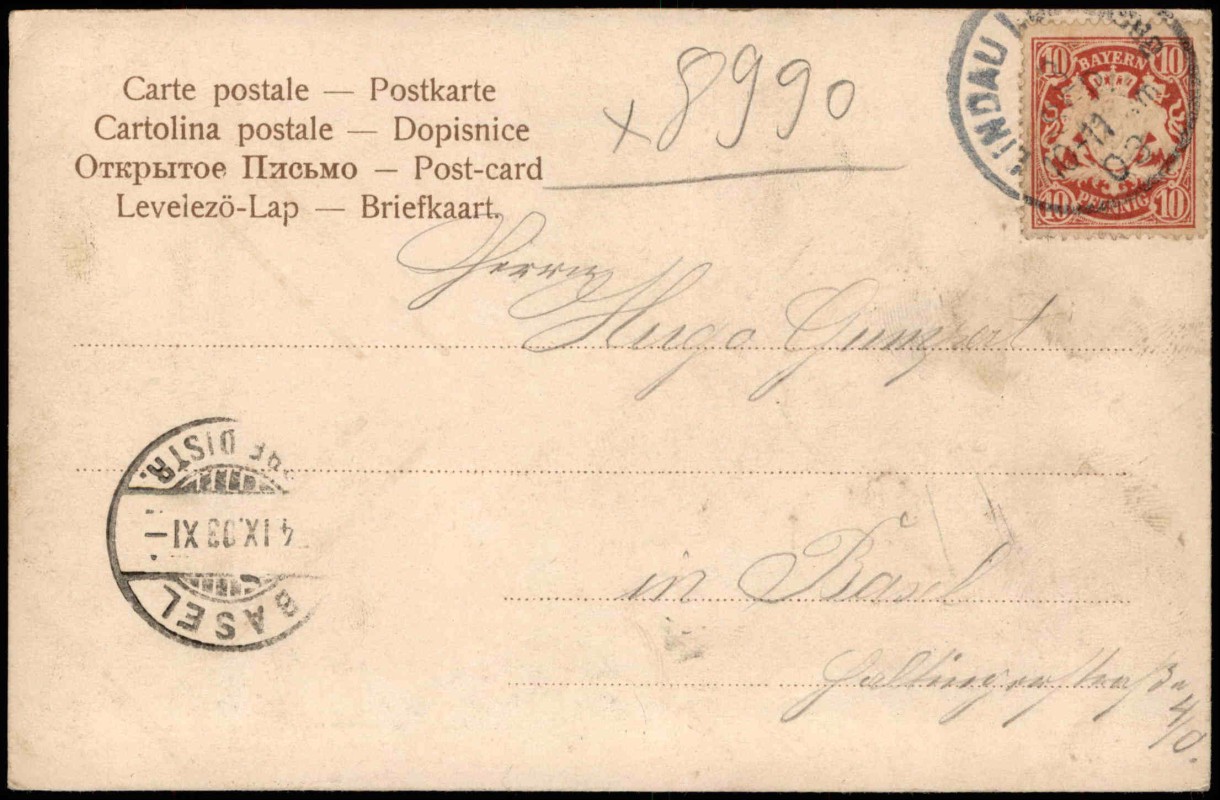 Carte postale — Postkarte
Cartolina postale — Dopisnice
Открытое Письмо — Post-card
Levelező-Lap — Briefkaart.
x 8990
LINDAU
10 BAYERN 10
10 PFENNIG 10
Herrn
Hugo Gumpert
in Basel
Haltingerstraße
BRF. DISTR.
4 IX.03 XI—
BASEL